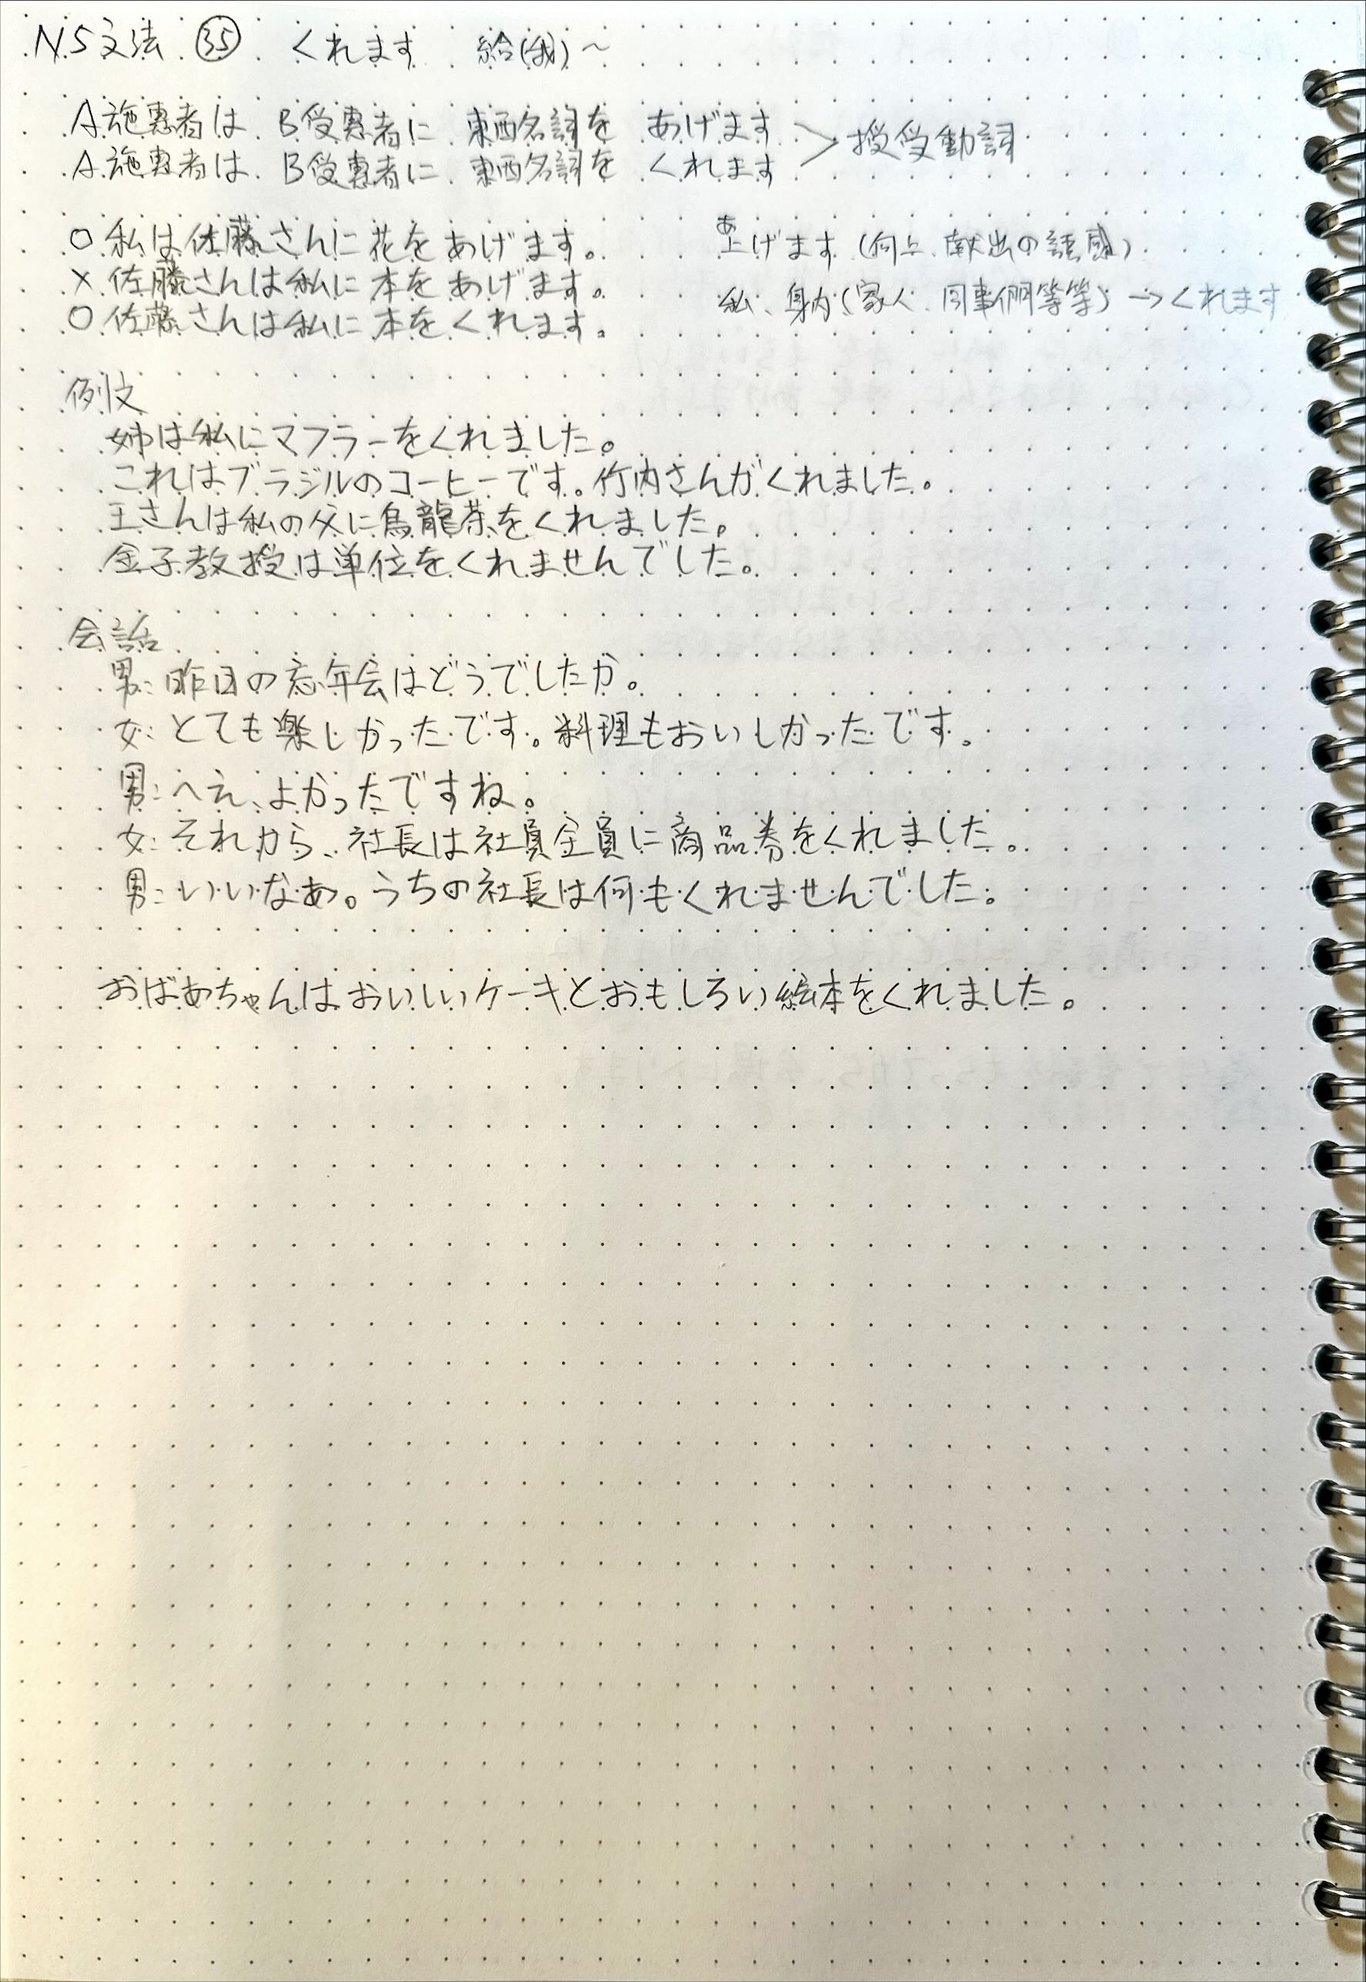 N5文法 ㉟ くれます 給(我)～
A施惠者は B受惠者に 東西名詞を あげます
A施惠者は B受惠者に 東西名詞を くれます
＞授受動詞
○ 私は佐藤さんに花をあげます。
× 佐藤さんは私に本をあげます。
○ 佐藤さんは私に本をくれます。
あ
上げます (向上、献出の語感)
私、身内(家人、同事們等等) →くれます
例文
姉は私にマフラーをくれました。
これはブラジルのコーヒーです。竹内さんがくれました。
王さんは私の父に烏龍茶をくれました。
金子教授は単位をくれませんでした。
会話
男: 昨日の忘年会はどうでしたか。
女: とても楽しかったです。料理もおいしかったです。
男: へえ、よかったですね。
女: それから、社長は社員全員に商品券をくれました。
男: いいなあ。うちの社長は何もくれませんでした。
おばあちゃんはおいしいケーキとおもしろい絵本をくれました。